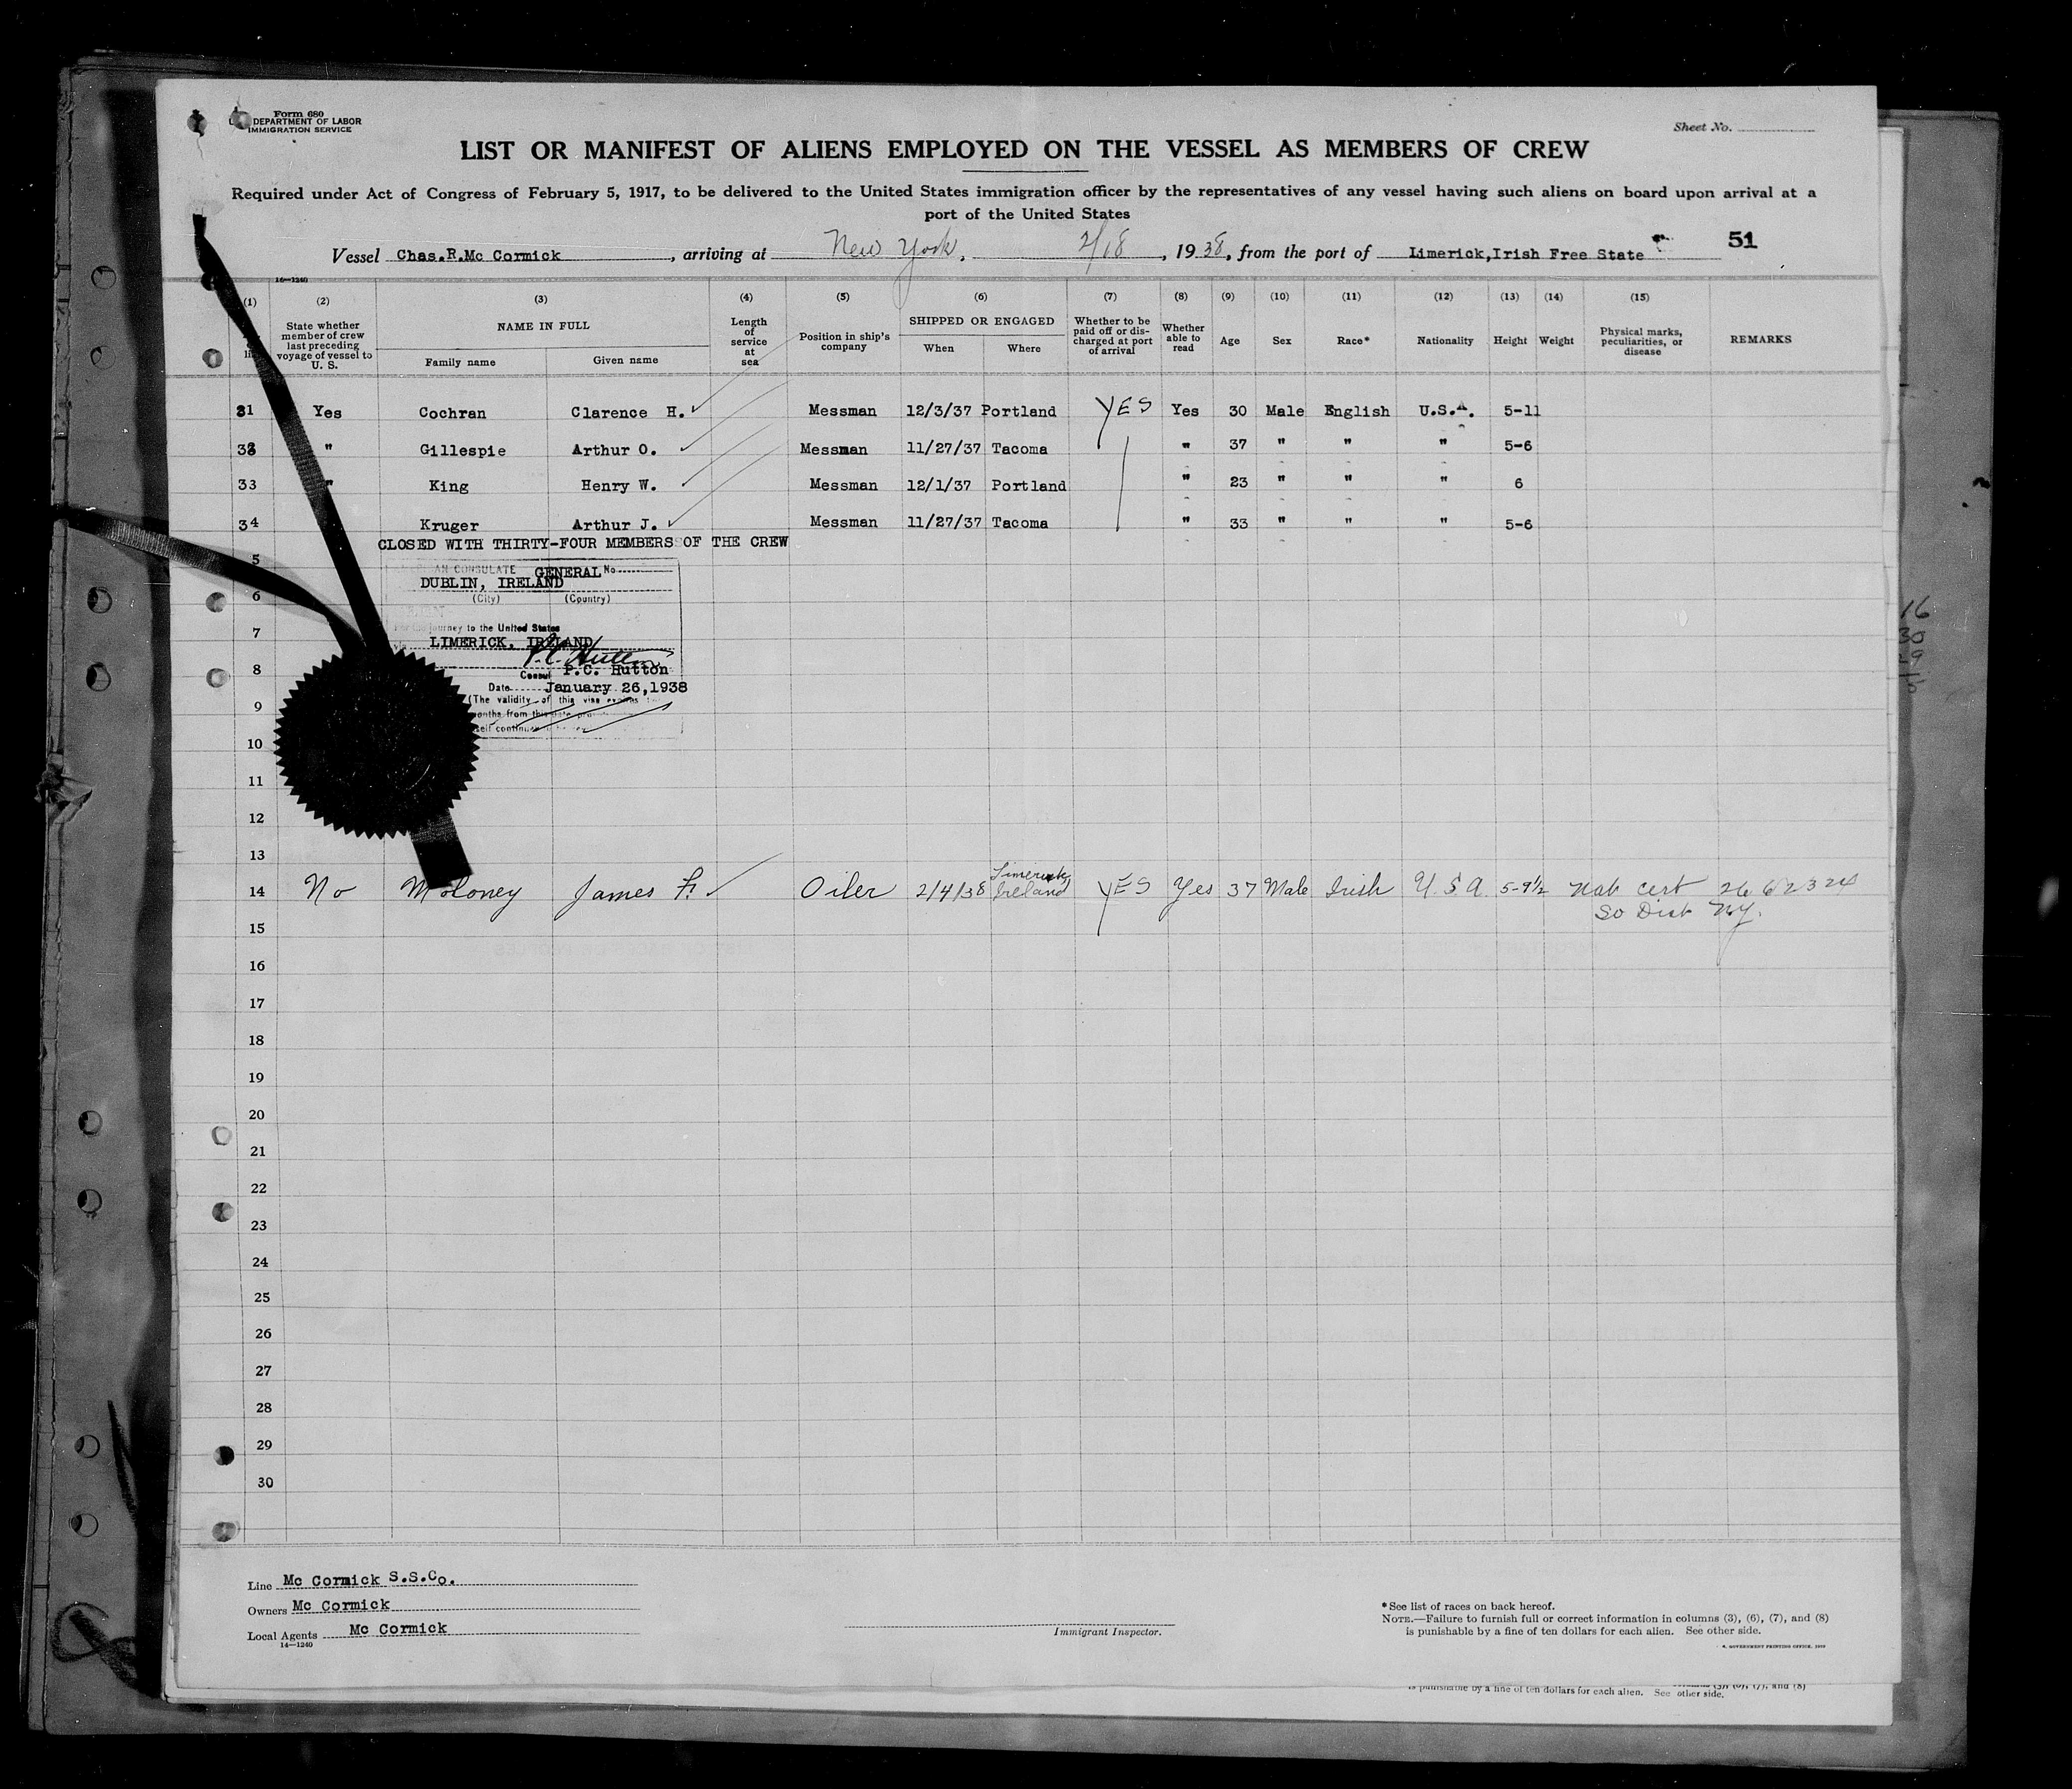 Form 680
DEPARTMENT OF LABOR
IMMIGRATION SERVICE
Sheet No.
LIST OR MANIFEST OF ALIENS EMPLOYED ON THE VESSEL AS MEMBERS OF CREW
Required under Act of Congress of February 5, 1917, to be delivered to the United States immigration officer by the representatives of any vessel having such aliens on board upon arrival at a
port of the United States
Vessel Chas.R.Mc Cormick, arriving at New York, 2/18, 1938, from the port of Limerick,Irish Free State 51
16—1240
(1) (2) (3) (4) (5) (6) (7) (8) (9) (10) (11) (12) (13) (14) (15)
State whether member of crew last preceding voyage of vessel to U. S.
NAME IN FULL
Family name Given name
Length of service at sea
Position in ship's company
SHIPPED OR ENGAGED
When Where
Whether to be paid off or discharged at port of arrival
Whether able to read
Age Sex Race* Nationality Height Weight
Physical marks, peculiarities, or disease
REMARKS
31 Yes Cochran Clarence H. Messman 12/3/37 Portland YES Yes 30 Male English U.S.A. 5-11
32 " Gillespie Arthur O. Messman 11/27/37 Tacoma " 37 " " " 5-6
33 " King Henry W. Messman 12/1/37 Portland " 23 " " " 6
34 Kruger Arthur J. Messman 11/27/37 Tacoma " 33 " " " 5-6
CLOSED WITH THIRTY-FOUR MEMBERS OF THE CREW
5
CONSULATE GENERAL No.
DUBLIN, IRELAND
6
(City) (Country)
7
journey to the United States
LIMERICK, IRELAND
8
Consul P.C. Hutton
Date January 26,1938
9
(The validity of this visa expires
months from this date
self
10
11
12
13
14 No Moloney James F. Oiler 2/4/38 Limerick Ireland YES Yes 37 Male Irish U.S.A. 5-9½ Nat cert 2662324
So Dist NY.
15
16
17
18
19
20
21
22
23
24
25
26
27
28
29
30
Line Mc Cormick S.S.Co.
Owners Mc Cormick
Local Agents Mc Cormick
14—1240
Immigrant Inspector.
*See list of races on back hereof.
NOTE.—Failure to furnish full or correct information in columns (3), (6), (7), and (8)
is punishable by a fine of ten dollars for each alien. See other side.
GOVERNMENT PRINTING OFFICE
is punishable by a fine of ten dollars for each alien. See other side.